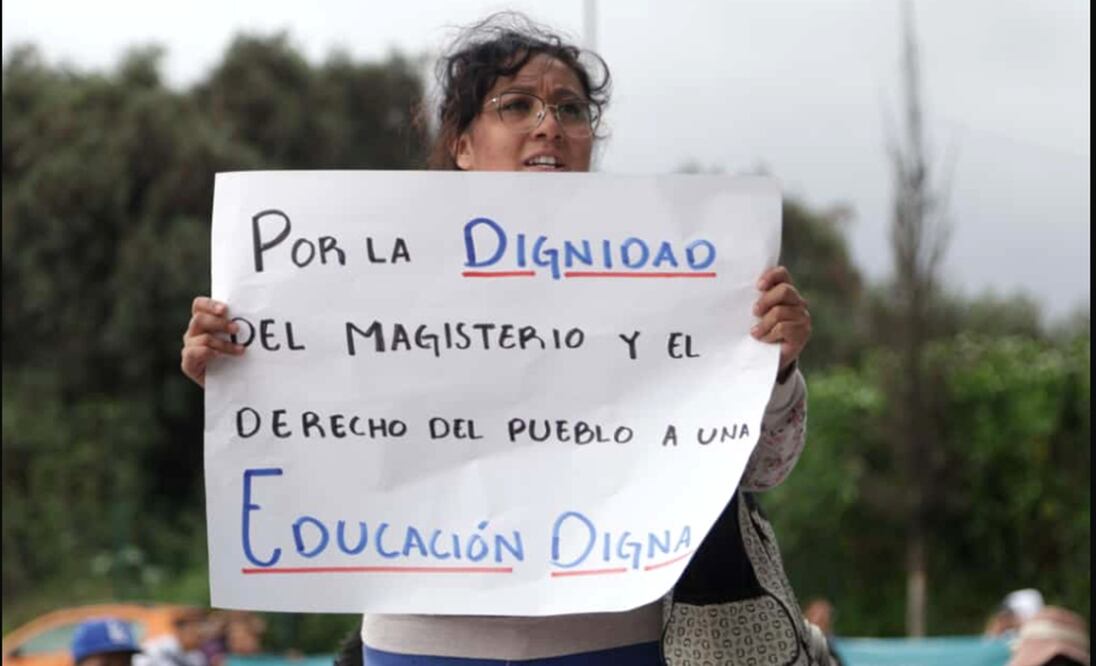 POR LA DIGNIDAD
DEL MAGISTERIO Y EL
DERECHO DEL PUEBLO A UNA
EDUCACIÓN DIGNA